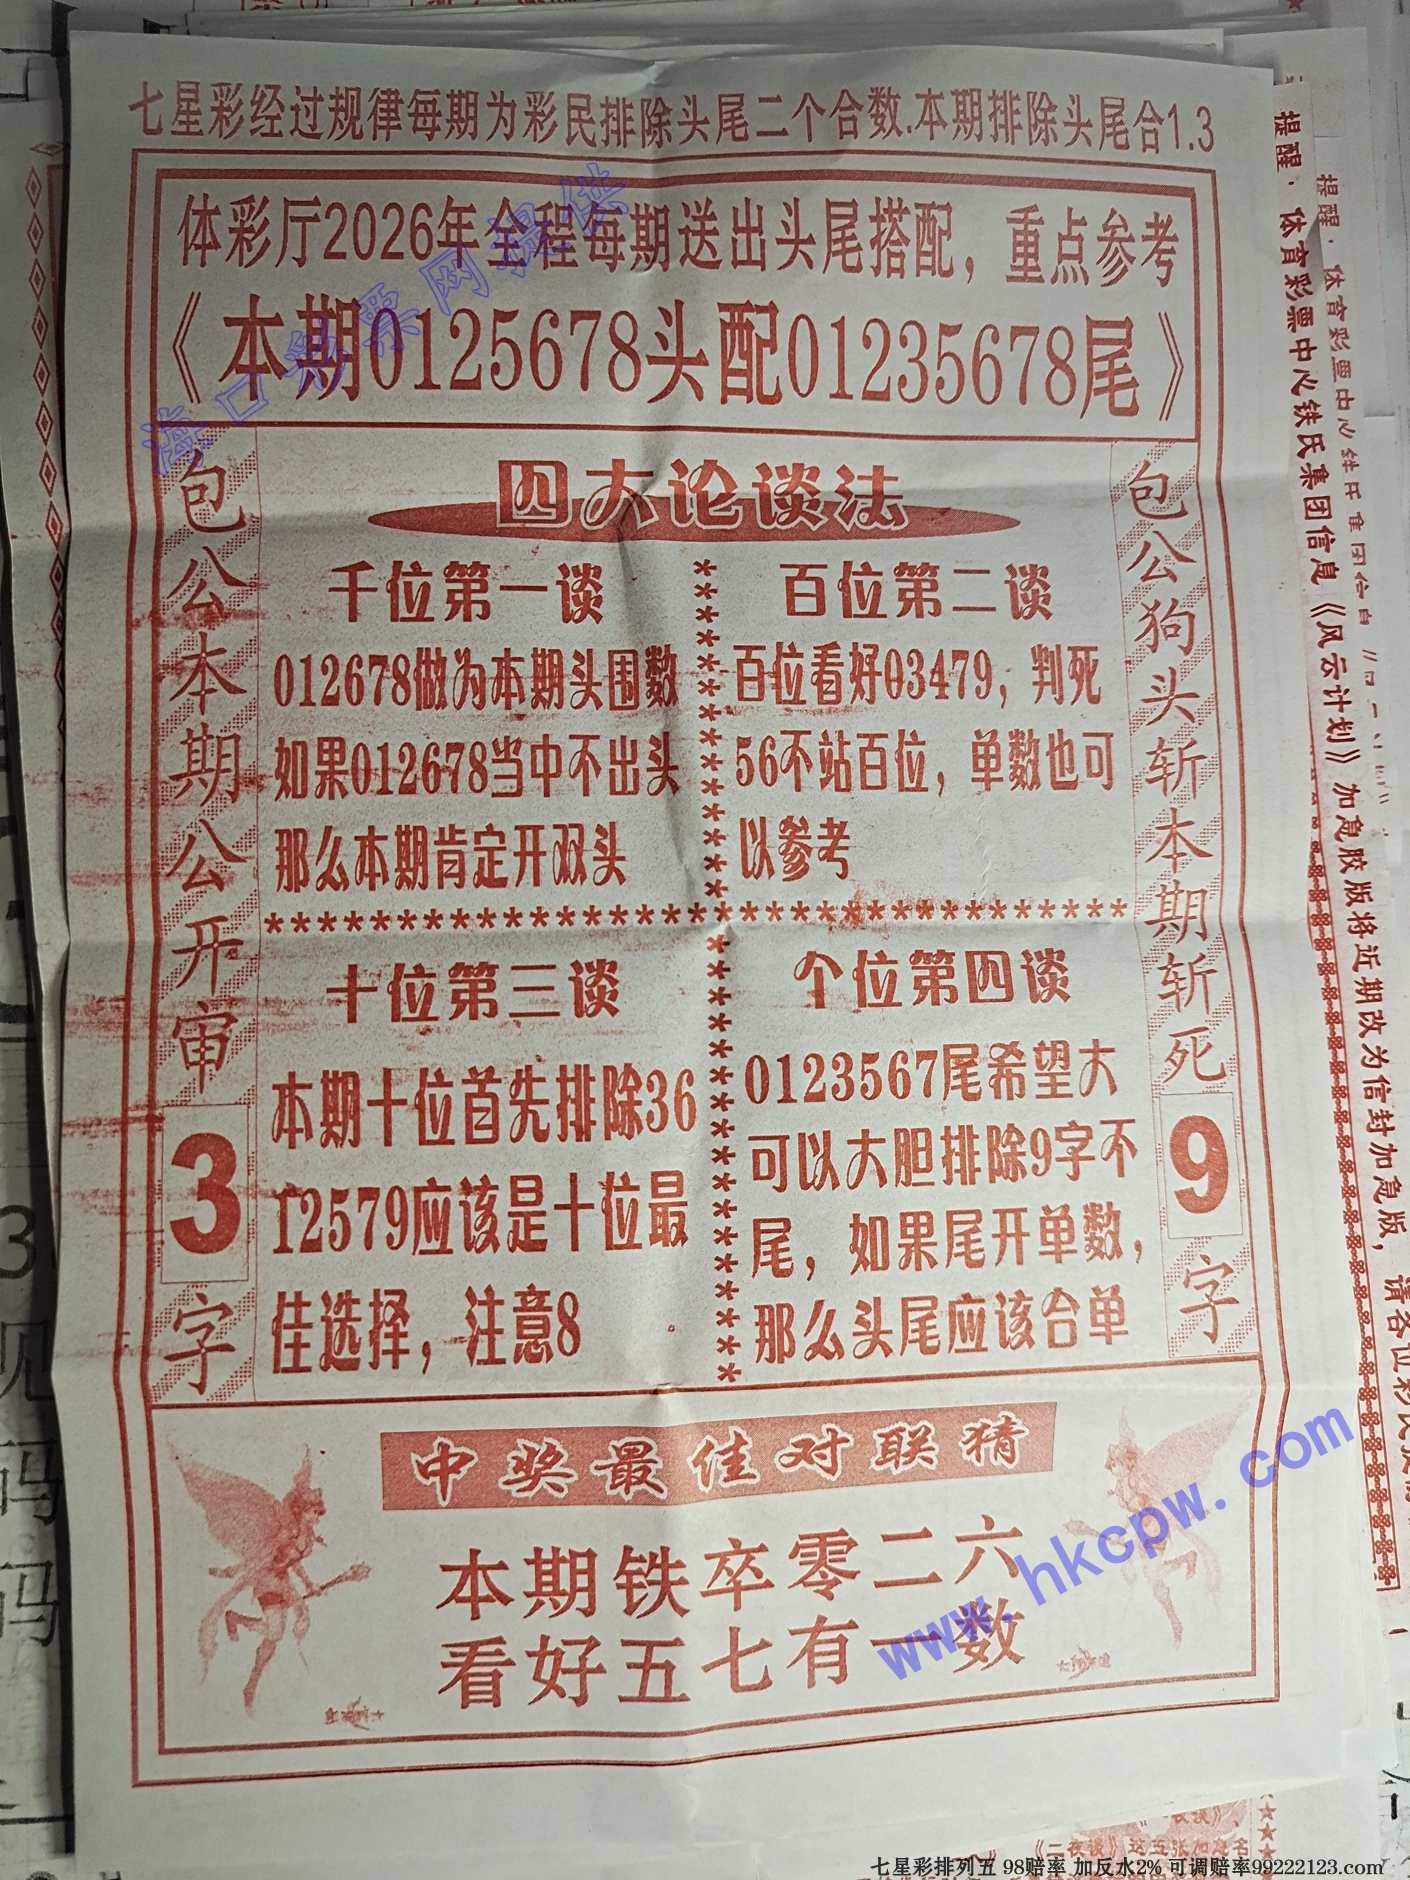 七星彩经过规律每期为彩民排除头尾二个合数.本期排除头尾合1.3
体彩厅2026年全程每期送出头尾搭配，重点参考
《本期0125678头配01235678尾》
海口彩票网提供
包公本期公开审
3
字
四大论谈法
千位第一谈
012678做为本期头围数
如果012678当中不出头
那么本期肯定开双头
百位第二谈
百位看好03479，判死
56不站百位，单数也可
以参考
十位第三谈
本期十位首先排除36
12579应该是十位最
佳选择，注意8
个位第四谈
0123567尾希望大
可以大胆排除9字不
尾，如果尾开单数，
那么头尾应该合单
包公狗头斩本期斩死
9
字
中奖最佳对联猜
本期铁卒零二六
看好五七有一数
www.hkcpw.com
提醒·体育彩票中心铁氏集团信息《风云计划》加急胶版将近期改为信封加急版，请各位彩民
《二夜谈》这五张加急名
七星彩排列五 98赔率 加反水2% 可调赔率99222123.com